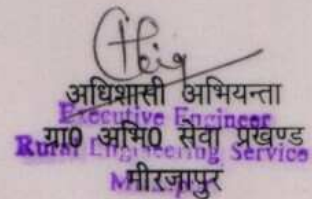 अधिशासी अभियन्ता
Executive Engineer
ग्रा0 अभि0 सेवा प्रखण्ड
Rural Engineering Service
मीरजापुर